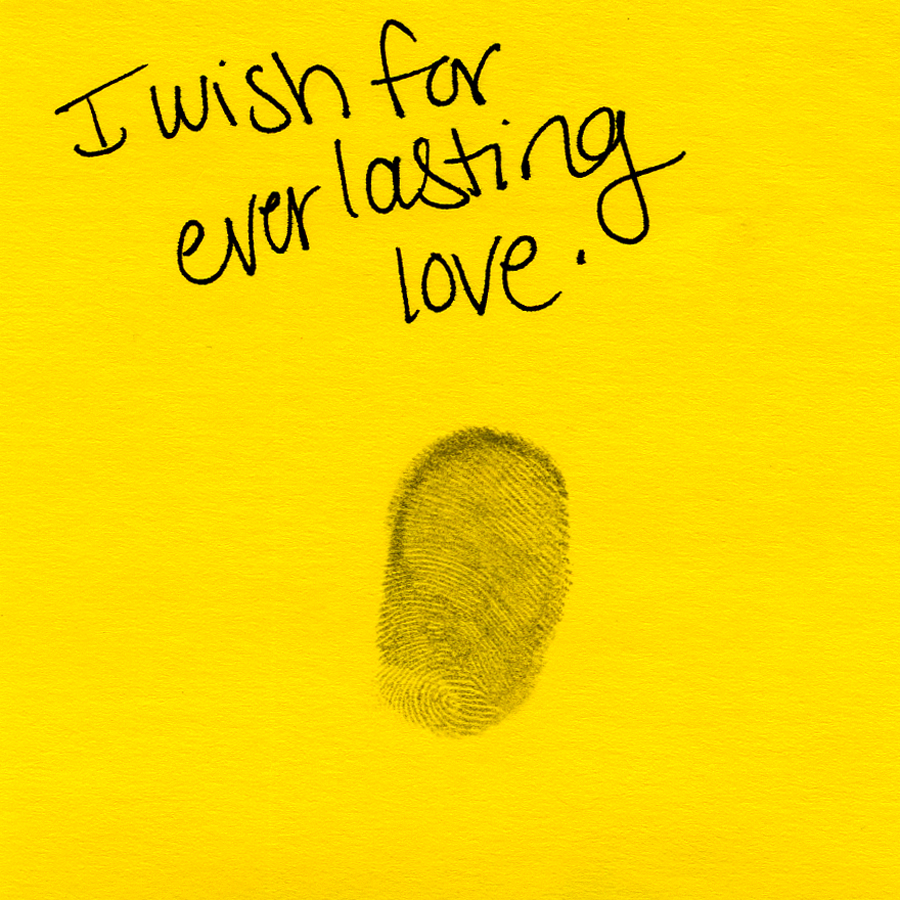 I wish for
everlasting
love.